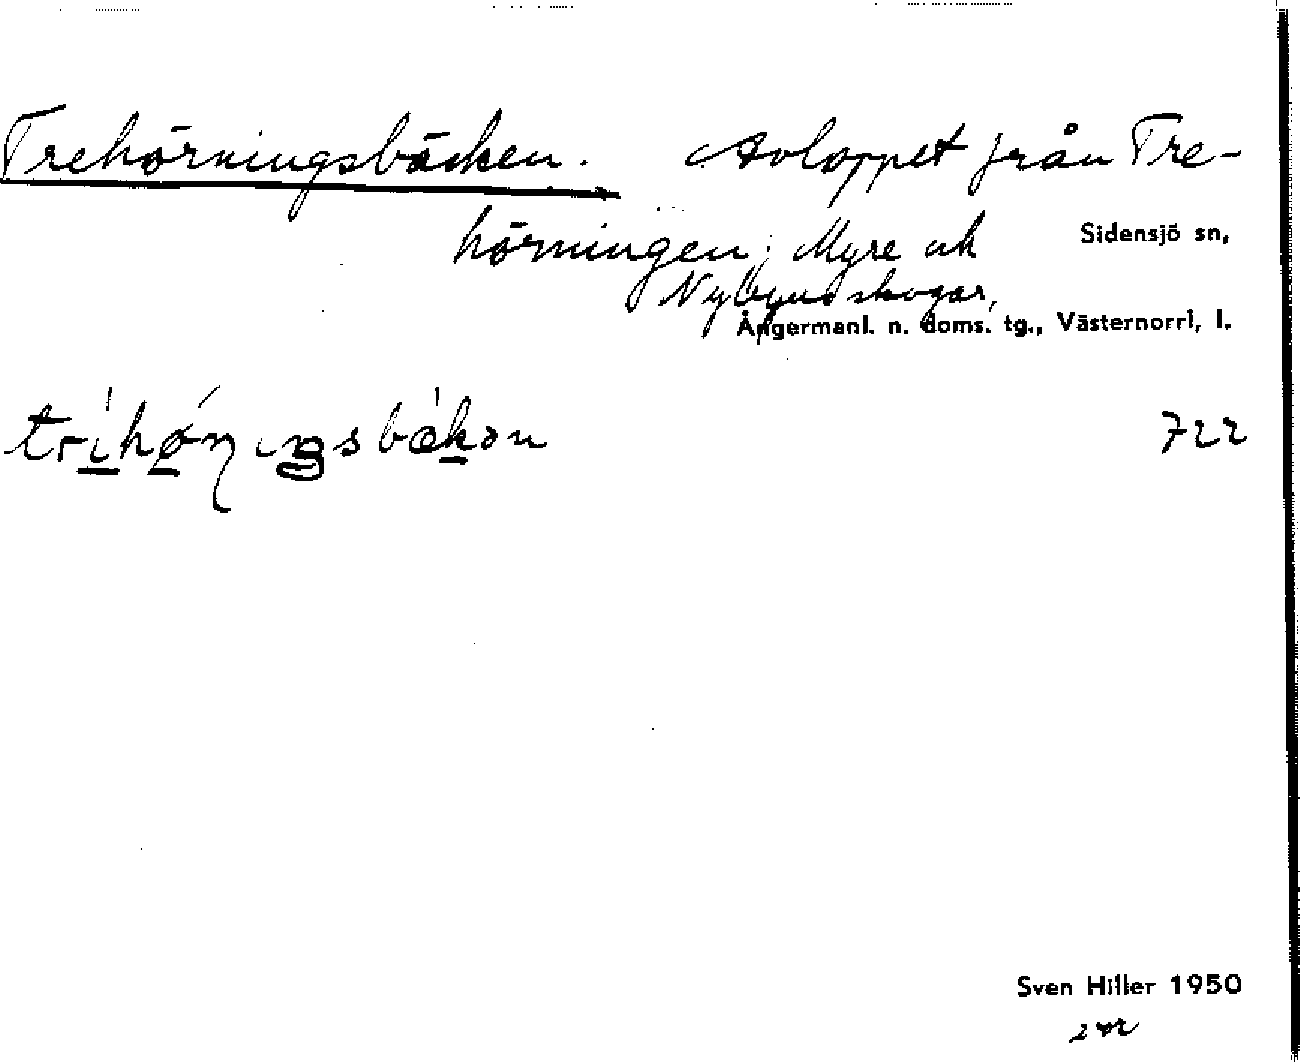 Trehörningsbäcken. Avloppet från Tre-
hörningen; Myre och
Sidensjö sn,
Nybyns skogar,
Ångermanl. n. doms. tg., Västernorrl, l.
722
Sven Hiller 1950